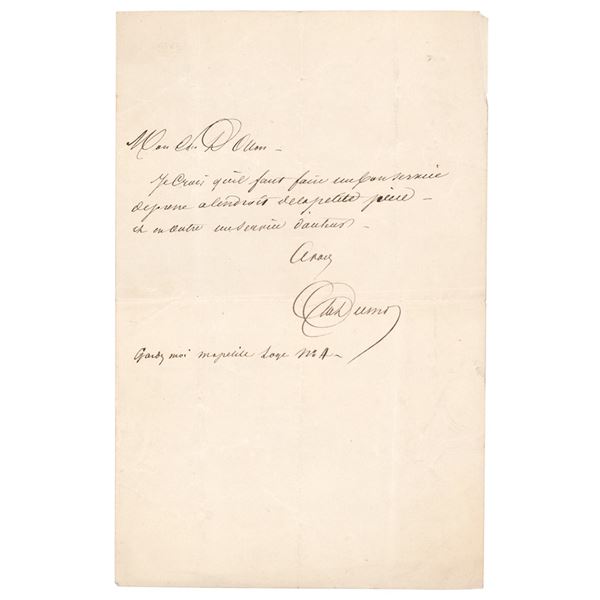 Mon Ch. D'Olon -
Je Crois qu'il faut faire un bon service
de presse à l'endroit de la petite pièce -
et en outre un service d'auteur -
A vous
Alex Dumas
Gardez moi ma petite Loge No A -